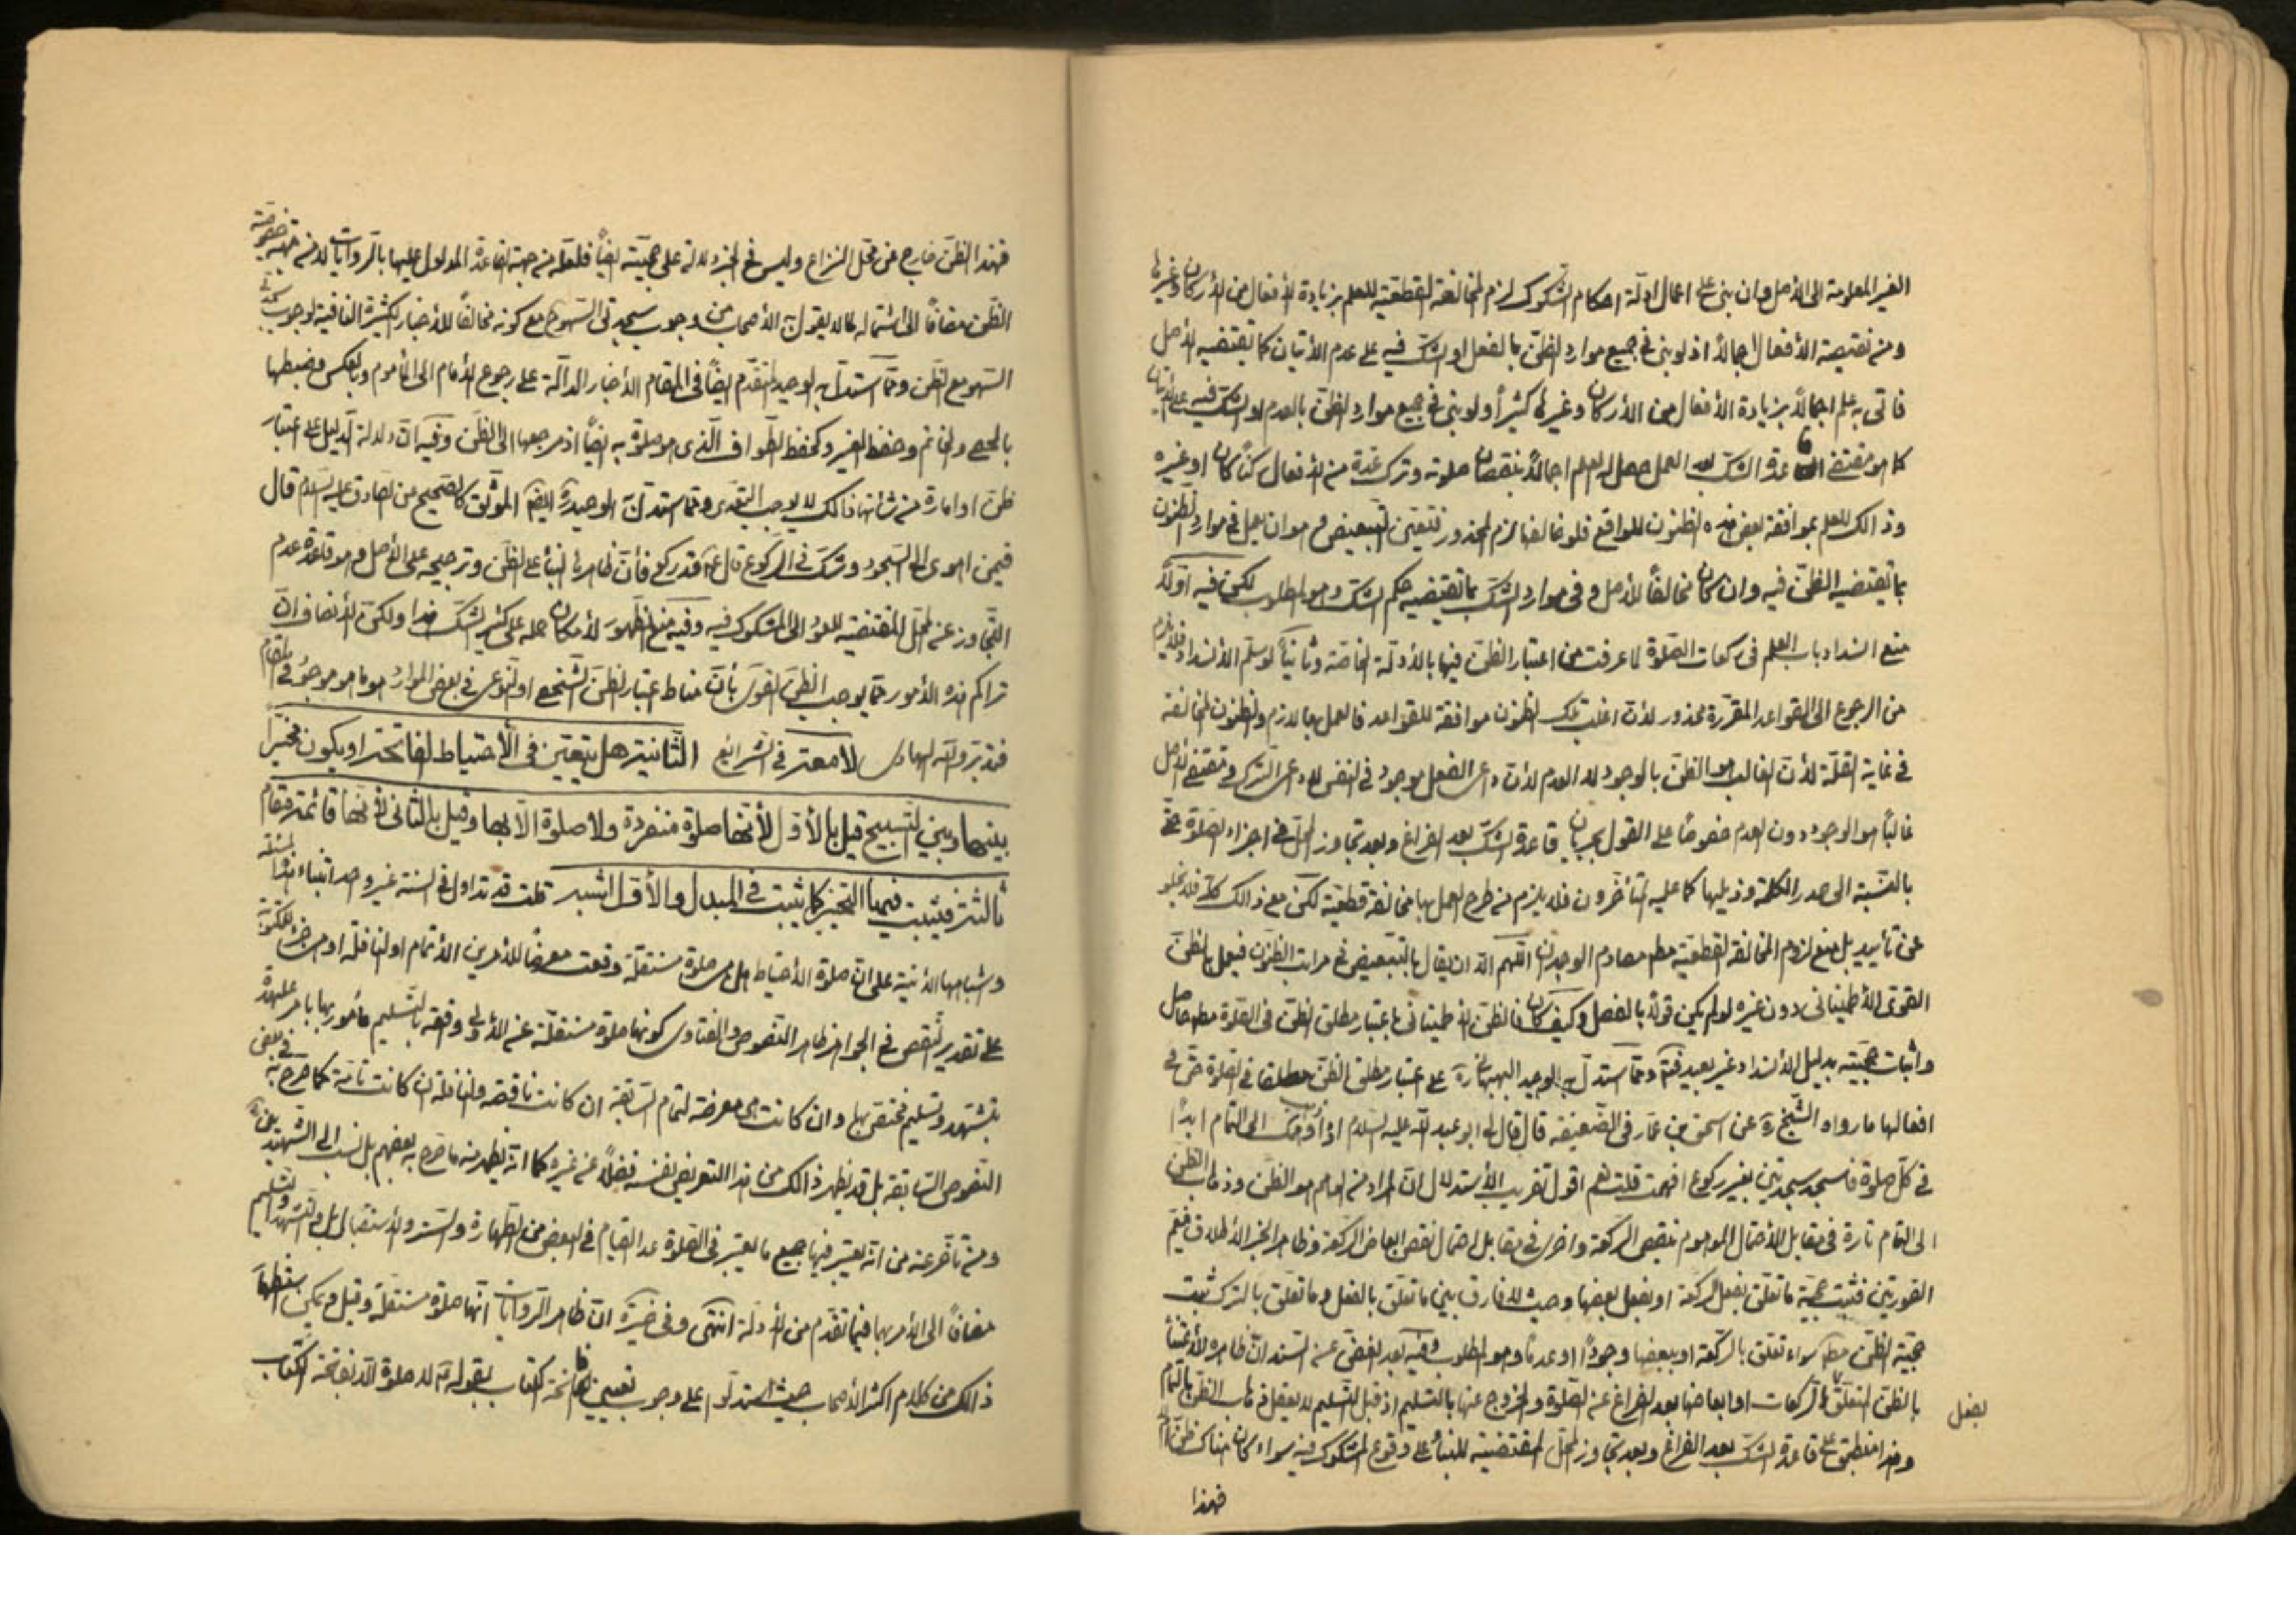 الغير المعلومة الى الأصل وان بنى على اعمال ادلة احكام الشكوك لزم المخالفة القطعية للعلم بزيادة الأفعال من الأركان وغيرها
ومن نقيصة الأفعال اجمالاً اذ لو بنى في جميع موارد الظن بالفعل او الشك فيه على عدم الأتيان كما تقتضيه الأصل
فاتى به علم اجمالاً بزيادة الأفعال من الأركان وغيرها كثيراً ولو بنى في جميع موارد الظن بالعدم او الشك فيه على الأتيان
كما هو مقتضى قاعدة الشك بعد العمل حصل له العلم اجمالاً بنقصان صلوته وترك عدة من الأفعال ركناً كان او غيره
وذالك للعلم بموافقة بعض هذه الظنون للواقع فلو خالفها لزم المحذور فتعين التبعيض وهو ان يعمل في موارد الظنون
بما تقتضيه الظن فيه وان كان مخالفاً للأصل وفى موارد الشك بما تقتضيه حكم الشك وهو المطلوب لكن فيه اولاً
منع انسداد باب العلم فى ركعات الصلوة لما عرفت من اعتبار الظن فيها بالأدلة الخاصة وثانياً لو سلم الأنسداد فلا يلزم
من الرجوع الى القواعد المقررة محذور لأن اغلب تلك الظنون موافقة للقواعد فالعمل بها لازم والظنون المخالفة
في غاية القلة لأن الغالب هو الظن بالوجود لا العدم لأن داعى الفعل موجود في النفس لا داعى الترك ومقتضى الأصل
غالباً هو الوجود دون العدم خصوصاً على القول بجريان قاعدة الشك بعد الفراغ وبعد تجاوز المحل في اجزاء الصلوة حتى
بالنسبة الى صدر الكلمة وذيلها كما عليه المتأخرون فلا يلزم من طرح العمل بها مخالفة قطعية لكن مع ذالك كله فلا يخلو
عن تأييد بل منع لزوم المخالفة القطعية مطم مصادم الوجدان اللهم الا ان يقال بالتبعيض في مراتب الظنون فيعمل بالظن
القوى الأطمينانى دون غيره لو لم يكن قولاً بالفصل وكيف كان فالظن الأطمينانى باعتبار مطلق الظن فى الصلوة مطم حاصل
واثبات حجيته بدليل الأنسداد غير بعيد فتم ومما استدل به الوحيد البهبهانى ره على اعتبار مطلق الظن مطلقا فى الصلوة حتى في
افعالها ما رواه الشيخ ره عن اسحق بن عمار فى الضعيفة قال قال لى ابو عبد الله عليه السلم اذا ذهب وهمك الى التمام ابداً
في كل صلوة فاسجد سجدتين بغير ركوع افهمت قلت نعم اقول تقريب الأستدلال ان المراد من الوهم هو الظن وذهاب الظن
الى التمام تارة فى مقابل الأحتمال الموهوم بنقص الركعة واخرى فى مقابل احتمال نقص ابعاض الركعة وظاهر الخبر الأطلاق فيعم
الصورتين فثبت حجية ما تعلق بفعل الركعة او بفعل بعضها وحيث لا فارق بين ما تعلق بالفعل وما تعلق بالترك ثبت
حجية الظن مطم سواء تعلق بالركعة او ببعضها وجوداً او عدماً وهو المطلوب وفيه بعد الغض عن السند ان ظاهره الأعتناء
بالظن المتعلق بالركعات او ابعاضها بعد الفراغ عن الصلوة والخروج عنها بالتسليم اذ قبل التسليم لا يعقل ذهاب الظن بالتمام
بفعل
وهذا منطبق على قاعدة الشك بعد الفراغ وبعد تجاوز المحل المقتضية للبناء على وقوع المشكوك فيه سواء كان هناك ظن ام لا
فهذا
فهذا الظن خارج عن محل النزاع وليس في الخبر دلالة على حجيته ايضاً فلعله من جهة القاعدة المدلول عليها بالروايات لا من جهة خصوصية
الظن مضافاً الى اشتماله لما لا يقول به الأصحاب من وجوب سجدتى السهو مع كونه مخالفاً للأخبار الكثيرة النافية لوجوب سجدتى
السهو مع الظن ومما استدل به الوحيد المتقدم ايضاً فى المقام الأخبار الدالة على رجوع الأمام الى المأموم وبالعكس وضبطها
بالحصى والخاتم وحفظ الغير وكحفظ الطواف الذى هو صلوة به ايضاً اذ مرجعها الى الظن وفيه ان دلالة الدليل على اعتبار
ظن او امارة من شأنها ذالك لا يوجب التعدى ومما استدل به الوحيد ره ايضاً الموثق كالصحيح عن الصادق عليه السلم قال
فيمن اهوى الى السجود وشك في الركوع قال ع قد ركع فأن ظاهره البناء على الظن وترجيحه على الأصل وهو قاعدة عدم
التجاوز عن المحل المقتضية للعود الى المشكوك فيه وفيه منع الظهور لأمكان حمله على كثير الشك هذا ولكن الأنصاف ان
تراكم هذه الأمور مما يوجب الظن القوى بأن مناط اعتبار الظن الشخصى او النوعى فى بعض الموارد هو ما هو موجود في المقام
فتدبر والله الهادى لا معتر فى الشرايع الثانية هل يتعين فى الأحتياط الفاتحة او يكون مخيراً
بينها وبين التسبيح قيل بالأول لأنها صلوة منفردة ولا صلوة الا بها وقيل بالثانى لأنها قائمة مقام
ثالثة فيثبت فيها التخيير كما يثبت في المبدل والأول اشبه قلت قد تداول في السنة غير واحد ابتناء هذه المسئلة
وشباهها الأتية على ان صلوة الأحتياط هل هى صلوة مستقلة وقعت معرضاً للأمرين الأتمام او النافلة او هى جزء للمكتوبة
على تقدير النقص في الجواهر ظاهر النصوص والفتاوى كونها صلوة مستقلة عن الأولى وقعة بالتسليم مأمور بها بامر عليحدة
بتشهد وتسليم مختص بها وان كانت هى معرضة لتمام السابقة ان كانت ناقصة والنافلة ان كانت تامة كما صرح به في بعض
النصوص السابقة بل قد يظهر ذالك من هذا التعريض نفسه فضلاً عن غيره كما انه يظهر منه ما صرح به بعضهم بل نسب الى الشهيد
ومن تأخر عنه من انه يعتبر فيها جميع ما يعتبر فى الصلوة عدا القيام في البعض من الطهارة والستر والأستقبال بل والتشهد والتسليم
مضافاً الى الأمر بهما فيما تقدم من الأدلة انتهى وفى ان ظاهر الروايات انها صلوة مستقلة وقيل ويمكن استظهار
ذالك من كلام اكثر الأصحاب حيث استدلوا على وجوب تعيين فاتحة الكتاب بقوله لا صلوة الا بفاتحة الكتاب